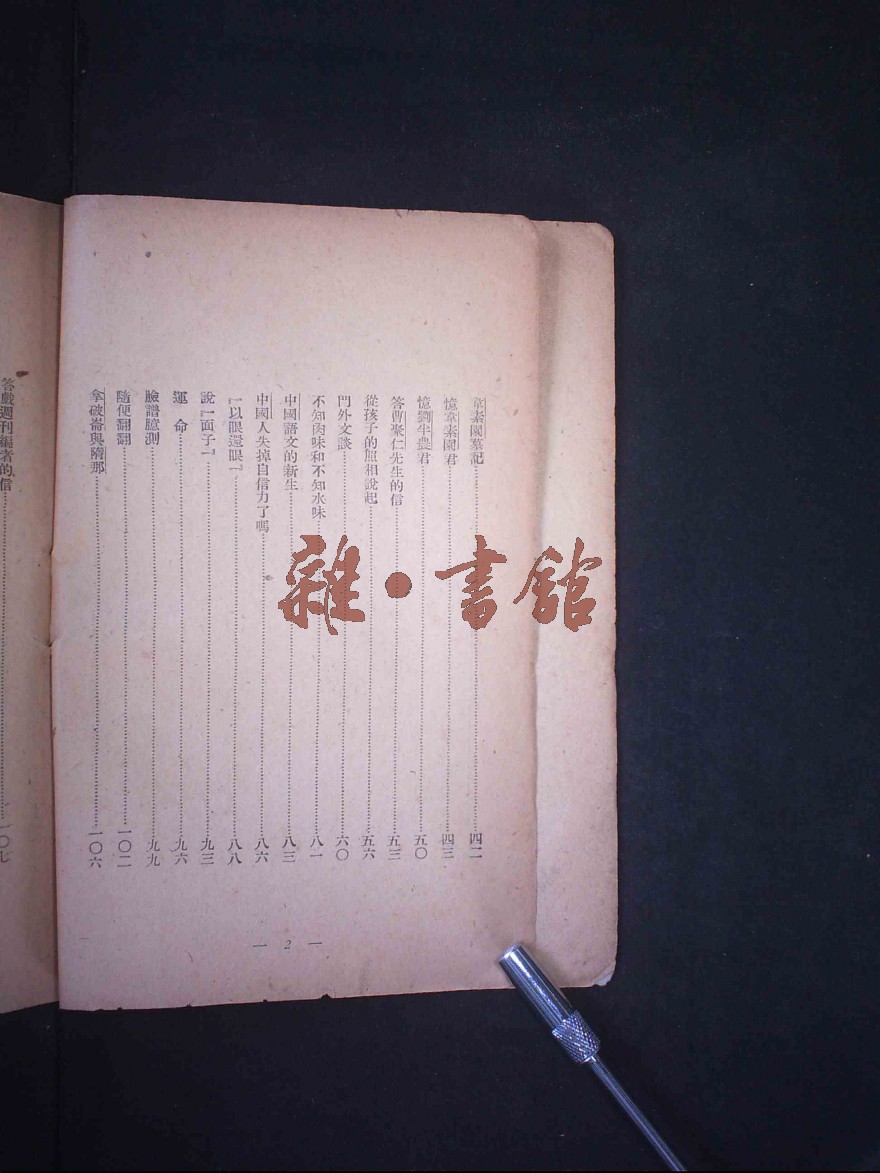 韋素園墓記……四二
憶韋素園君……四三
憶劉半農君……五〇
答曹聚仁先生的信……五三
從孩子的照相說起……五六
門外文談……六〇
不知肉味和不知水味……八一
中國語文的新生……八三
中國人失掉自信力了嗎……八六
『以眼還眼』……八八
說『面子』……九三
運命……九六
臉譜臆測……九九
隨便翻翻……一〇二
拿破崙與隋那……一〇六
— 2 —
答戲週刊編者的信……一〇七
雜·書館